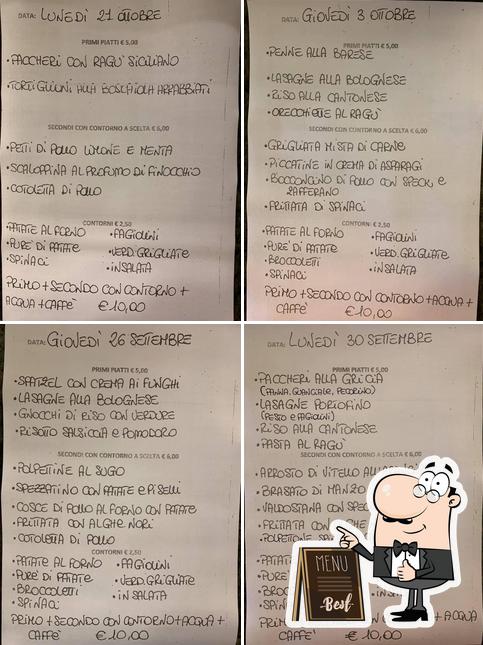 DATA: LUNEDÌ 21 OTTOBRE
PRIMI PIATTI € 5,00
•PACCHERI CON RAGU' SICILIANO
•TORTIGLIONI ALLA BOSCAIOLA ARRABBIATI
SECONDI CON CONTORNO A SCELTA € 6,00
•PETTI DI POLLO LIMONE E MENTA
•SCALOPPINA AL PROFUMO DI FINOCCHIO
•COTOLETTA DI POLLO
CONTORNI € 2,50
•PATATE AL FORNO •FAGIOLINI
•PURE' DI PATATE •VERD. GRIGLIATE
•SPINACI •INSALATA
PRIMO + SECONDO CON CONTORNO +
ACQUA + CAFFE' € 10,00
DATA: GIOVEDÌ 3 OTTOBRE
PRIMI PIATTI € 5,00
•PENNE ALLA BARESE
•LASAGNE ALLA BOLOGNESE
•RISO ALLA CANTONESE
•ORECCHIETTE AL RAGU'
SECONDI CON CONTORNO A SCELTA € 6,00
•GRIGLIATA MISTA DI CARNE
•PICCATINE IN CREMA DI ASPARAGI
•BOCCONCINO DI POLLO CON SPECK E
ZAFFERANO
•FRITTATA DI SPINACI
CONTORNI € 2,50
•PATATE AL FORNO •FAGIOLINI
•PURE' DI PATATE •VERD. GRIGLIATE
•BROCCOLETTI •INSALATA
•SPINACI
PRIMO + SECONDO CON CONTORNO + ACQUA +
CAFFE' € 10,00
DATA: GIOVEDÌ 26 SETTEMBRE
PRIMI PIATTI € 5,00
•SPATZEL CON CREMA AI FUNGHI
•LASAGNE ALLA BOLOGNESE
•GNOCCHI DI RISO CON VERDURE
•RISOTTO SALSICCIA E POMODORO
SECONDI CON CONTORNO A SCELTA € 6,00
•POLPETTINE AL SUGO
•SPEZZATINO CON PATATE E PISELLI
•COSCE DI POLLO AL FORNO CON PATATE
•FRITTATA CON ALGHE NORI
•COTOLETTA DI POLLO
CONTORNI € 2,50
•PATATE AL FORNO •FAGIOLINI
•PURE' DI PATATE •VERD. GRIGLIATE
•BROCCOLETTI •INSALATA
•SPINACI
PRIMO + SECONDO CON CONTORNO + ACQUA +
CAFFE' € 10,00
DATA: LUNEDÌ 30 SETTEMBRE
PRIMI PIATTI € 5,00
•PACCHERI ALLA GRICIA
(PANNA, GUANCIALE, PECORINO)
•LASAGNE PORTOFINO
(PESTO E FAGIOLINI)
•RISO ALLA CANTONESE
•PASTA AL RAGU'
SECONDI CON CONTORNO A SCELTA € 6,00
•ARROSTO DI VITELLO
•BRASATO DI MANZO
•VALDOSTANA CON
•FRITTATA CON
•POLPETTINE
•PATATE
•PURE'
+ ACQUA
CAFFE' € 10,00
MENU
Best